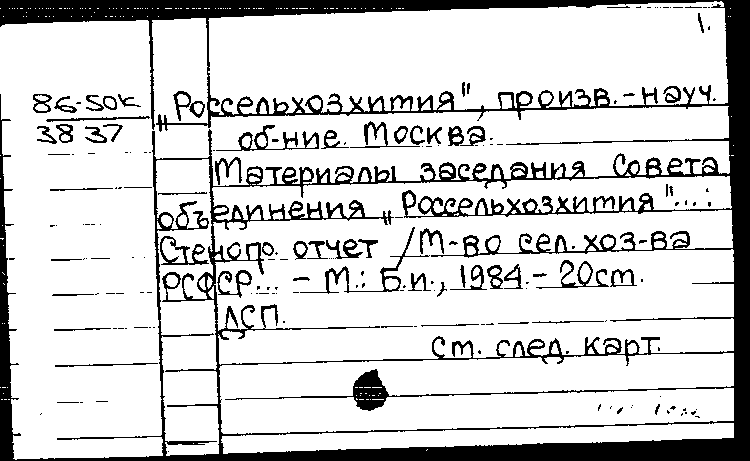 1.
86-50к
3837
„Россельхозхимия", произв.-науч.
об-ние. Москва.
Материалы заседания Совета
объединения „Россельхозхимия"...:
Стеногр. отчет / М-во сел. хоз-ва
РСФСР... - М.: Б.и., 1984. - 20 см.
ДСП.
См. след. карт.